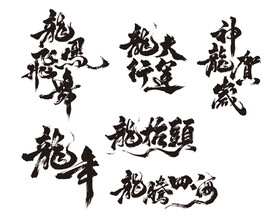 龍飛
鳳舞
龍行
大運
神龍
賀歲
龍年
龍抬頭
龍騰四海